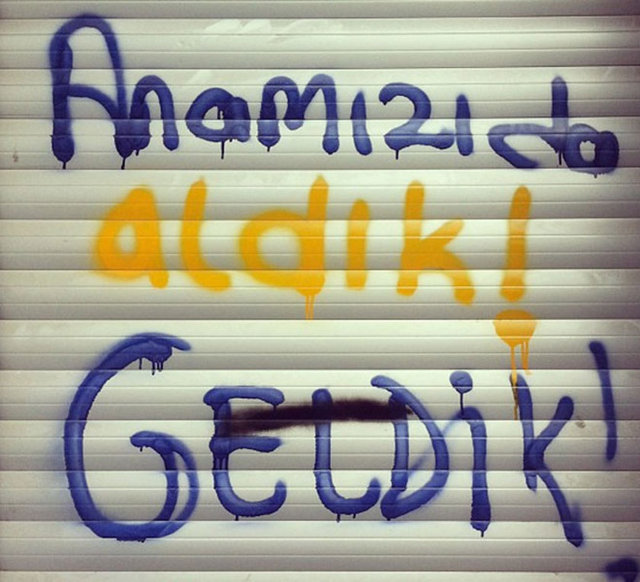 Anamızı da
aldık!
GELDiK!